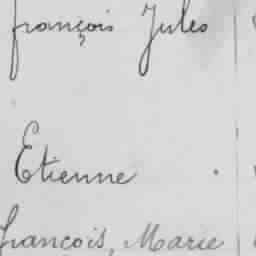 françois Jules
Etienne
françois, Marie